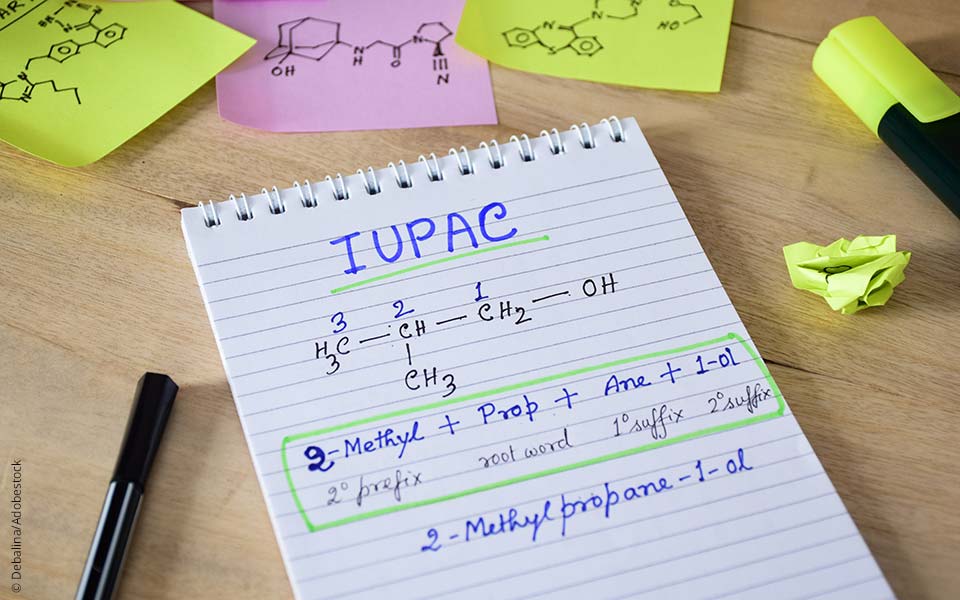 OH
N
H
O
N
N
HO
IUPAC
3 2 1
H3C — CH — CH2 — OH
CH3
2-Methyl + Prop + Ane + 1-ol
2° prefix root word 1° suffix 2° suffix
2-Methylpropane-1-ol
© Debalina/Adobestock